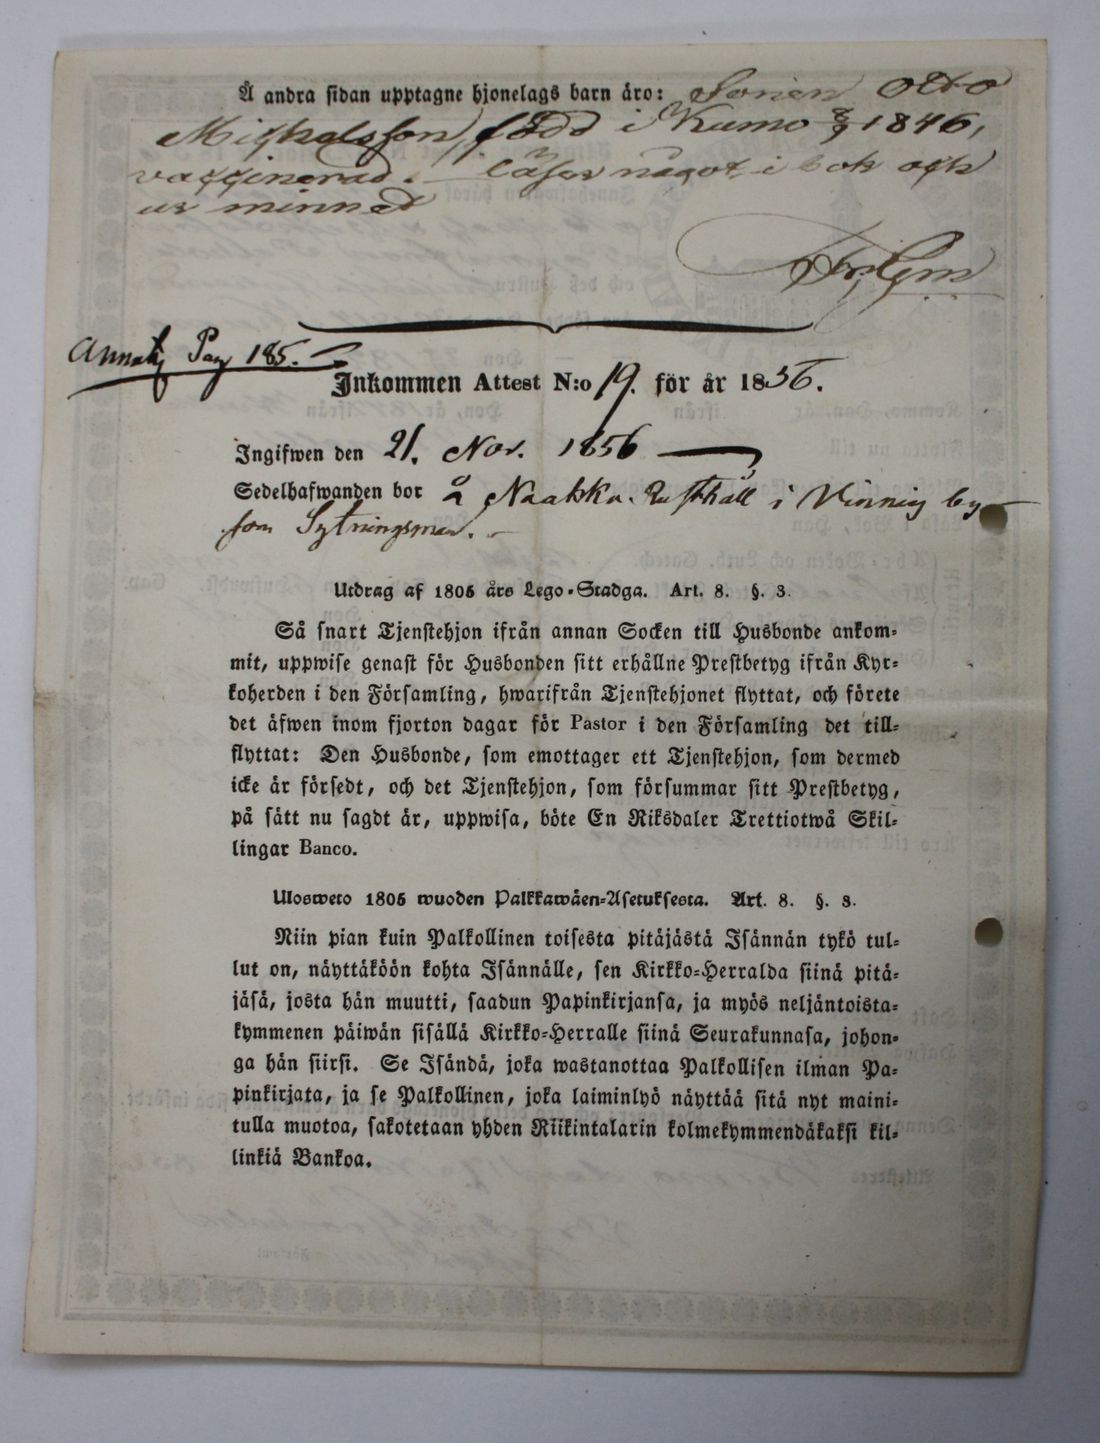 Å andra sidan upptagne hjonelags barn äro: Sonen Otto
Michelsson, född i Kumo 8/9 1846,
vaccinerad. läser något i bok och
ur minnet
Annot. Pag 185.
Inkommen Attest N:o 19. för år 1856.
Ingifwen den 21. Nov. 1856
Sedelhafwanden bor å Naakka Rusthåll i Vinnis by
som Sytningsman.
Utdrag af 1805 års Lego-Stadga. Art. 8. §. 3.
Så snart Tjenstehjon ifrån annan Socken till Husbonde ankom-
mit, uppwise genast för Husbonden sitt erhållne Prestbetyg ifrån Kyr-
koherden i den Församling, hwarifrån Tjenstehjonet flyttat, och förete
det äfwen inom fjorton dagar för Pastor i den Församling det till-
flyttat: Den Husbonde, som emottager ett Tjenstehjon, som dermed
icke är försedt, och det Tjenstehjon, som försummar sitt Prestbetyg,
på sätt nu sagdt är, uppwisa, böte En Riksdaler Trettiotwå Skil-
lingar Banco.
Ulosweto 1805 wuoden Palkkawäen-Asetuksesta. Art. 8. §. 3.
Niin pian kuin Palkollinen toisesta pitäjästä Isännän tykö tul-
lut on, näyttäköön kohta Isännälle, sen Kirkko-Herralda siinä pitä-
jäsä, josta hän muutti, saadun Papinkirjansa, ja myös neljäntoista-
kymmenen päiwän sisällä Kirkko-Herralle siinä Seurakunnasa, johon-
ga hän siirsi. Se Isändä, joka wastanottaa Palkollisen ilman Pa-
pinkirjata, ja se Palkollinen, joka laiminlyö näyttää sitä nyt maini-
tulla muotoa, sakotetaan yhden Riikintalarin kolmekymmendäkaksi kil-
linkiä Bankoa.